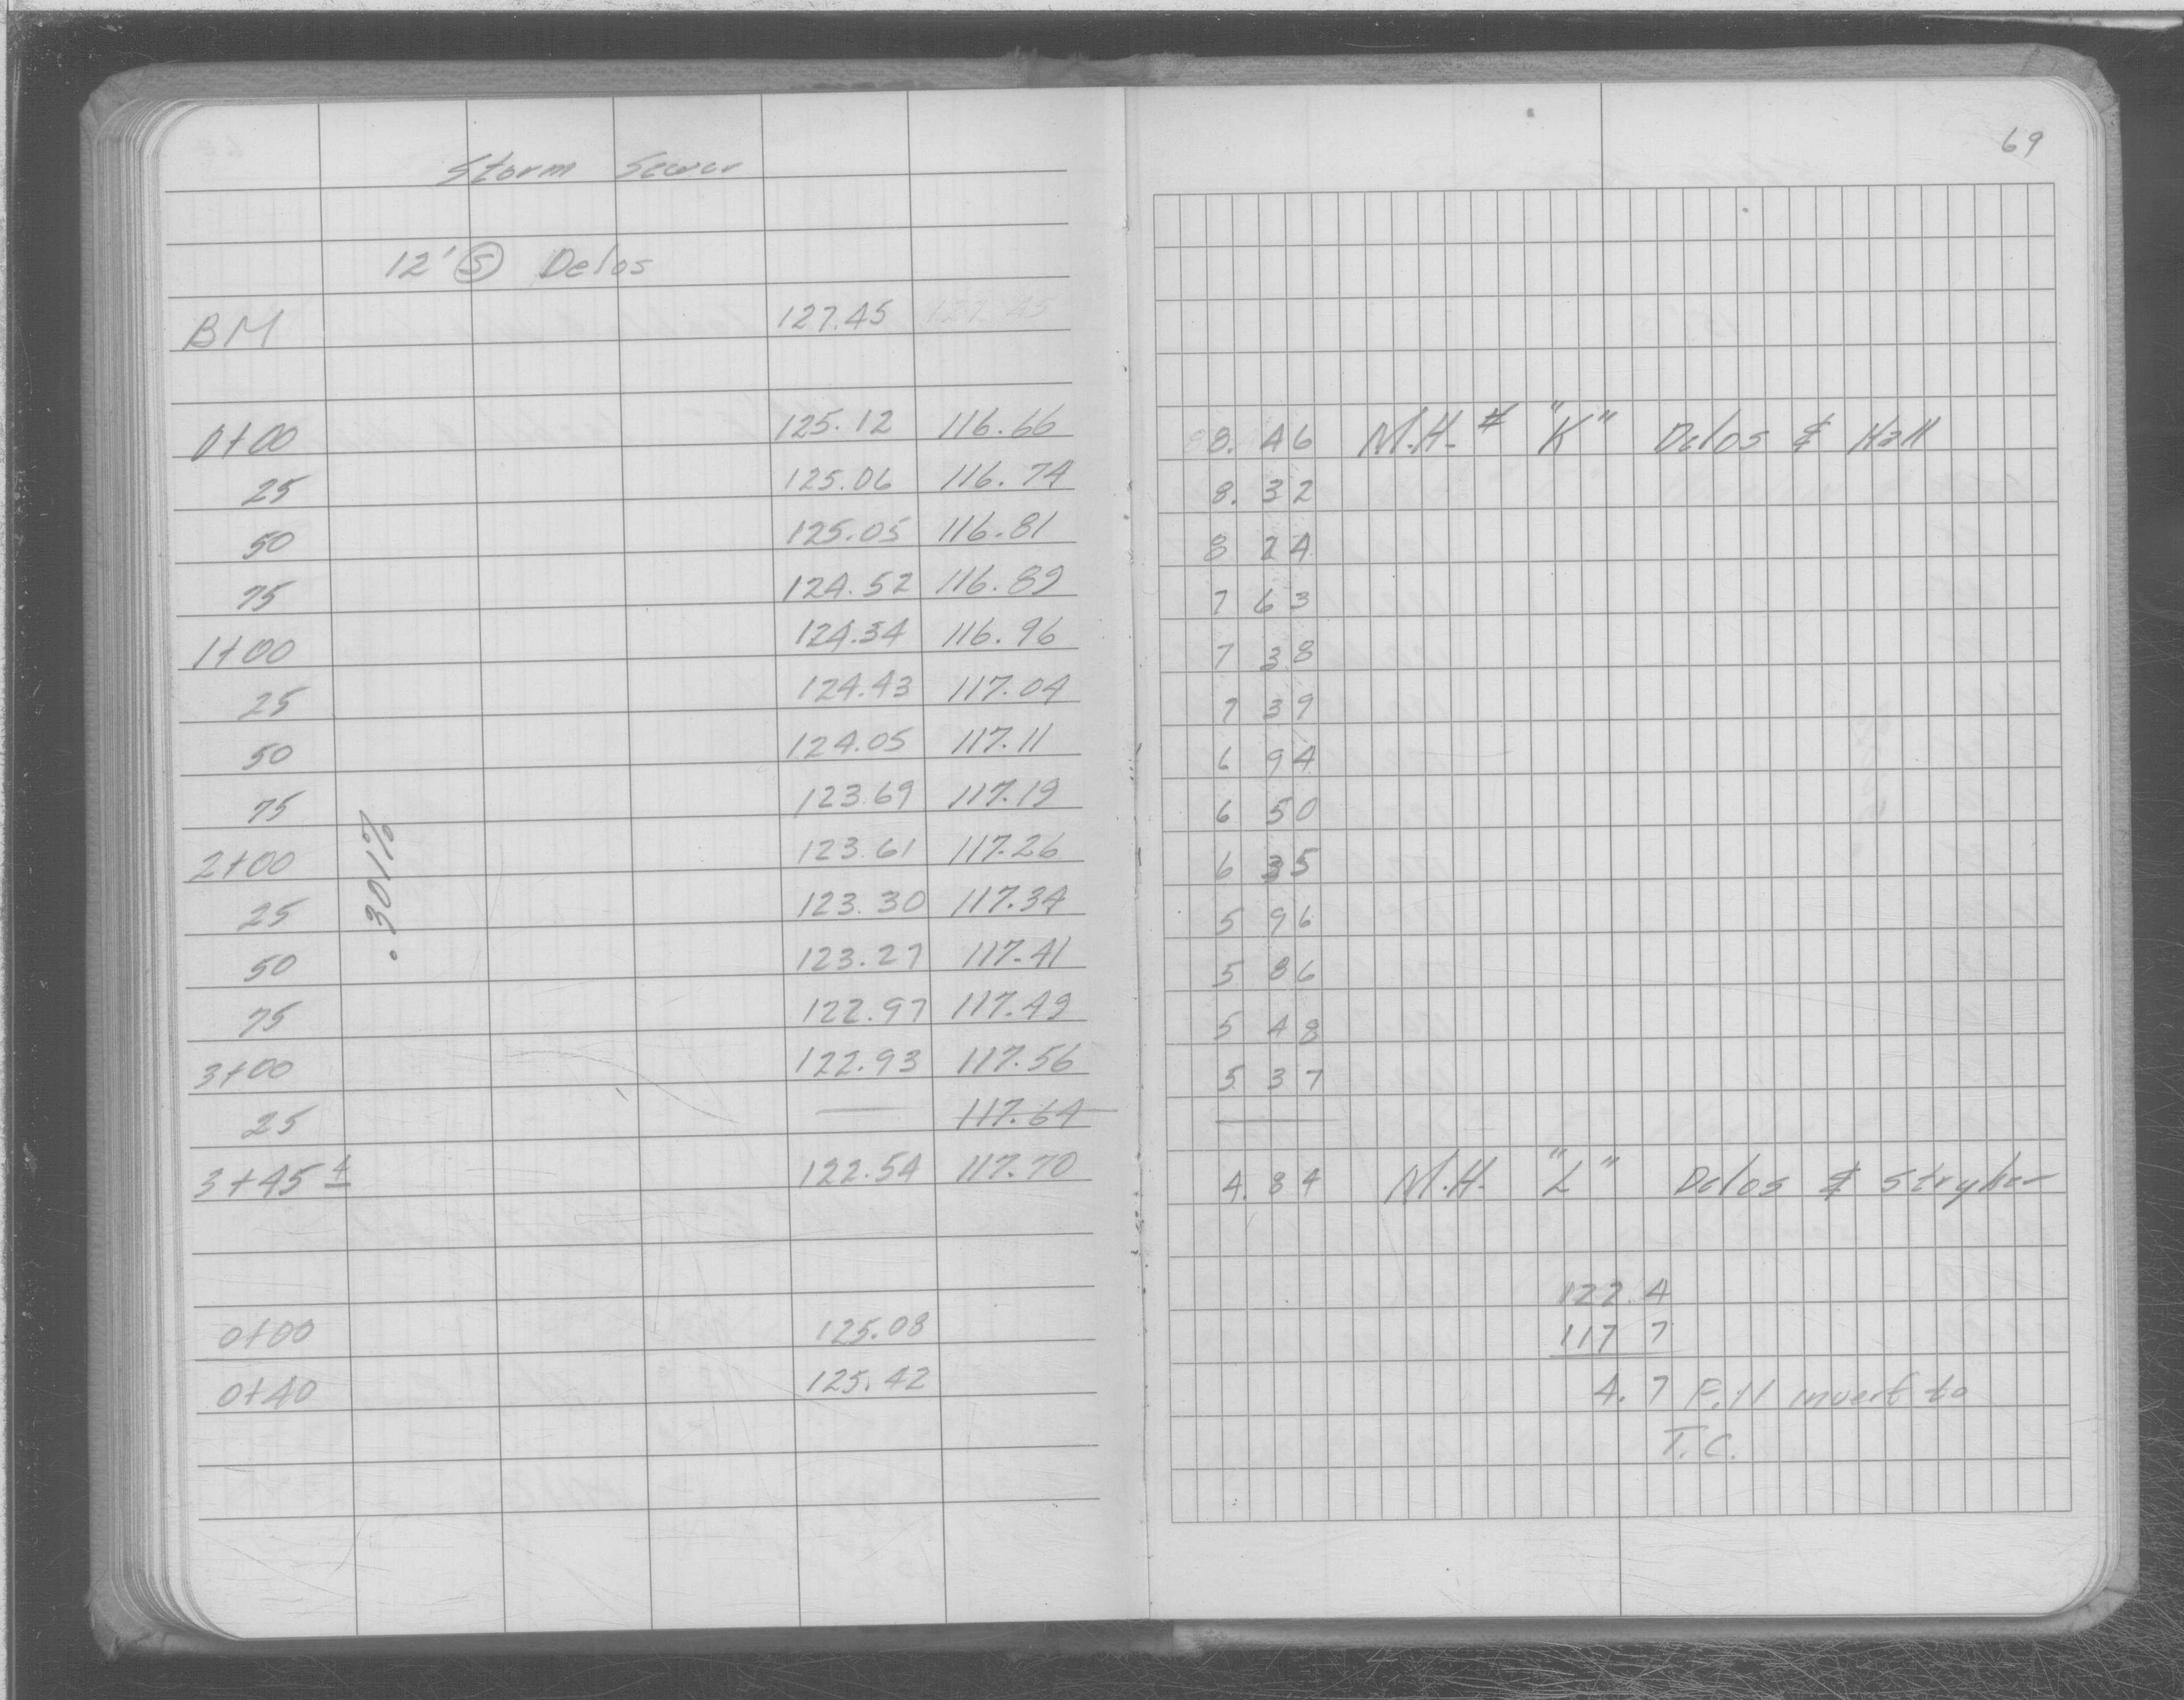 69
Storm Sewer
12' S Delos
BM 127.45 127.45
0+00 125.12 116.66 8.46 M.H. # "K" Delos & Hall
25 125.06 116.74 8.32
50 125.05 116.81 8 24
75 124.52 116.89 7 63
1+00 124.34 116.96 7 38
25 124.43 117.04 7 39
50 124.05 117.11 6 94
75 123.69 117.19 6 50
.301%
2+00 123.61 117.26 6 35
25 123.30 117.34 5 96
50 123.27 117.41 5 86
75 122.97 117.49 5 48
3+00 122.93 117.56 5 37
25 — 117.64 —
3+45 4 122.54 117.70 4.84 M.H. "L" Delos & Stryker
122.4
0+00 125.08 117 7
0+40 125.42 4.7 Fill invert to
T.C.